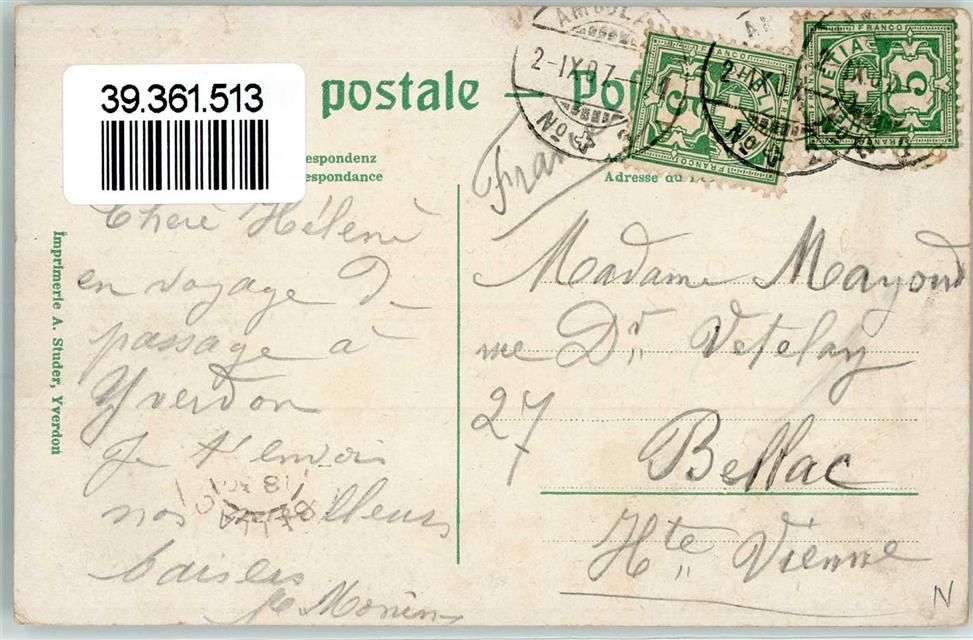 39.361.513
postale — Po
espondenz
espondance
Adresse du
AMBULA
2-IX.07.-
FRANCO
HELVETIA
5
FRANCO
Imprimerie A. Studer, Yverdon
Chère Hélène
en voyage de
passage à
Yverdon
Je t'envoie
nos meilleurs
baisers
Madame Mayoud
rue Dr Vetelay
27
Bellac
Hte Vienne
N